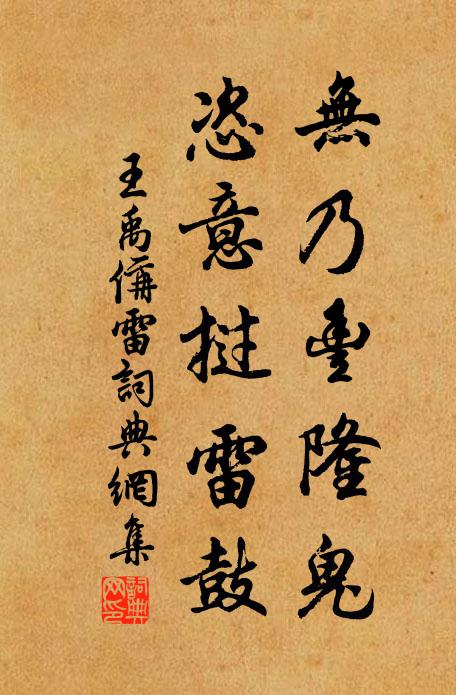 無乃豐隆鬼
恣意撻雷鼓
王禹偁雷詞典網集
詞典網印